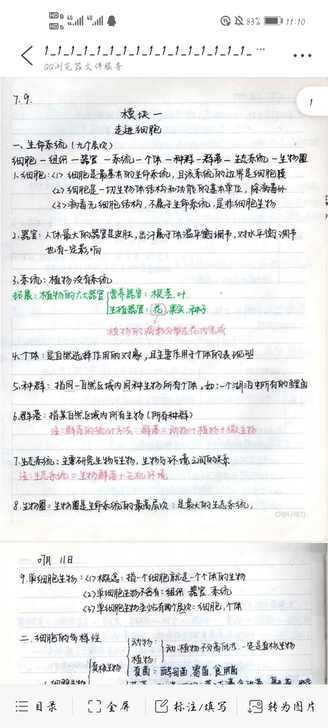 83% 11:10
1_1_1_1_1_1_1_1_1_1_1_1_1_1_1_1_ ...
QQ浏览器文件服务
1
7.9.
模块一
走进细胞
一、生命系统(九个层次)
细胞－组织－器官－系统－个体－种群－群落－生态系统－生物圈
1.细胞:<1> 细胞是最基本的生命系统,且该系统的边界是细胞膜
<2> 细胞是一切生物体结构和功能的基本单位,除病毒外
<3> 病毒无细胞结构,不属于生命系统,是非细胞生物
2.器官:人体最大的器官是皮肤,出汗属于体温平衡调节,对水平衡调节
也有一定影响
3.系统:植物没有系统
拓展:植物的六大器官 营养器官:根.茎.叶
生殖器官:花.果实.种子
植物的减数分裂在花内完成
4.个体:是自然选择作用的对象,且主要作用于个体的表现型
5.种群:指同一自然区域内同种生物所有个体,如:一个湖泊中所有的鲤鱼
6.群落:指某自然区域内所有生物(所有种群)
注:群落的统计方法:群落=动物+植物+微生物
7.生态系统:主要研究生物与生物,生物与环境之间的关系
注:生态系统=生物群落+无机环境
8.生物圈:生物圈是生命系统的最高层次:是最大的生态系统,
deli
07月 11日
9.单细胞生物:<1> 概念:指一个细胞就是一个个体的生物
<2> 单细胞生物不含有:组织 器官.系统
<3> 单细胞生物至少占两个层次:细胞,个体
二.细胞的多样性
动物:
植物:
动.植物不分高低等,一定是真核生物
真核生物
真菌:酵母菌,霉菌,食用菌
目录
全屏
标注/填写
转为图片